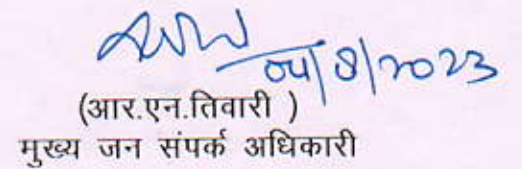 04/8/2023
(आर.एन.तिवारी )
मुख्य जन संपर्क अधिकारी